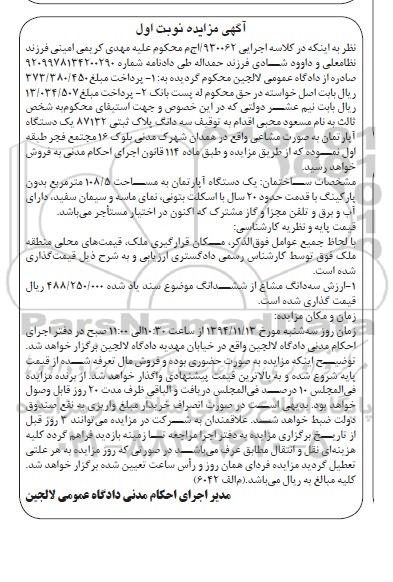 آگهی مزایده نوبت اول
نظر به اینکه در کلاسه اجرایی ۹۳۰۰۶۲/ج‌ا/م محکوم علیه مهدی کریمی امینی فرزند
نظامعلی و داوود شـادی فرزند حمداله طی دادنامه شماره ۹۲۰۹۹۷۸۱۳۴۲۰۰۲۹۰
صادره از دادگاه عمومی لالجین محکوم گردیده به: ۱- پرداخت مبلغ ۳۷۳/۳۸۰/۴۵۰
ریال بابت اصل خواسته در حق محکوم له پست بانک ۲- پرداخت مبلغ ۱۳/۰۳۴/۵۰۷
ریال بابت نیم عشـر دولتی که در این خصوص و جهت استیفای محکوم‌به شخص
ثالث به نام مسعود محبی اقدام به توقیف سه دانگ پلاک ثبتی ۸۷۱۳۲ یک دستگاه
آپارتمان به صورت مشاعی واقع در همدان شهرک مدنی بلوک ۱۶ مجتمع فجر طبقه
اول نمـوده که از طریق مزایده و طبق ماده ۱۱۴ قانون اجرای احکام مدنی به فروش
خواهد رسید.
مشخصات ساختمان: یک دستگاه آپارتمان به مسـاحت ۱۰۸/۵ مترمربع بدون
پارکینگ با قدمت حدود ۲۰ سال با اسکلت بتونی، نمای ماسه و سیمان سفید، دارای
آب و برق و تلفن مجزا و گاز مشترک که اکنون در اختیار مستأجر می‌باشد.
قیمت پایه و نظریه کارشناسی:
با لحاظ جمیع عوامل فوق‌الذکر، مـکان قرارگیری ملک، قیمت‌های محلی منطقه
ملک فوق توسط کارشناس رسمی دادگستری ارزیابی و به شرح ذیل قیمت‌گذاری
شده است.
۱-ارزش سه‌دانگ مشاع از ششـدانگ موضوع سند یاد شده ۴۸۸/۲۵۰/۰۰۰ ریال
قیمت گذاری شده است.
زمان و مکان مزایده:
زمان روز سه‌شنبه مورخ ۱۳۹۴/۱۱/۱۳ از ساعت ۱۰:۳۰ الی ۱۱:۰۰ صبح در دفتر اجرای
احکام مدنی دادگاه لالجین واقع در خیابان مهدیه دادگاه لالجین برگزار خواهد شد.
توضیـح اینکه مزایده به صورت حضوری بوده و فروش مال تعرفه شـده از قیمت
پایه شروع شده و به بالاترین قیمت پیشنهادی واگذار خواهد شد. از برنده مزایده
فی‌المجلس ۱۰ درصـد فی‌المجلس دریافت و الباقی ظرف مدت ۲۰ روز قابل وصول
خواهد بود. بدیهی است در صورت انصراف خریدار مبلغ واریزی به نفع صندوق
دولت ضبط خواهد شـد. علاقمندان به شـرکت در مزایده می‌توانند ۳ روز قبل
از تاریـخ برگزاری مزایده به دفتر اجرا مراجعه تا زمینه بازدید فراهم گردد کلیه
هزینه‌های نقل و انتقال مطابق عرف می‌باشـد در صورتی که روز مزایده به هر علتی
تعطیل گردید مزایده فردای همان روز و رأس ساعت تعیین شده برگزار خواهد شد.
کلیه مبالغ به ریال می‌باشد.(م‌الف ۶۰۴۲)
مدیر اجرای احکام مدنی دادگاه عمومی لالجین